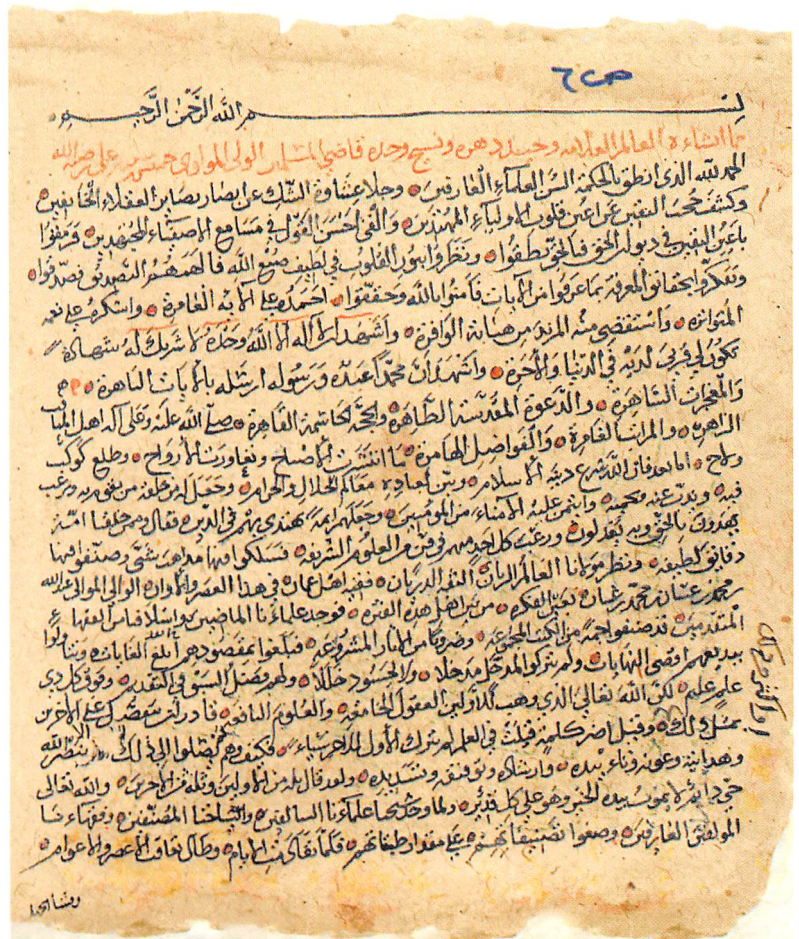 ص ٦
بسم الله الرحمن الرحيم
مما انشاءه العالم العلامه وحيد دهره ونسيج وحده قاضي المسلمين الولي الموالي خميس بن علي رحمه الله
الحمد لله الذي انطق بالحكمة السن العلماء العارفين وجلا عشاوة الشك عن ابصار بصاير العقلاء الخايفين
وكشف حجب اليقين عن اعين قلوب الاولياء المهتدين والقى احسن القول في مسامع الاصفياء المجتهدين فرمقوا
باعين اليقين في ديوان الحق فبالحق نطقوا ونظروا بنور القلوب في لطيف صنع الله فالهمهم التصديق فصدقوا
وتفكروا بحقائق المعرفة بما عرفوا من الآيات فامنوا بالله وحققوا احمده على الآيه الغامرة واشكره على نعمه
المتواترة واستقضي منه المزيد من هباته الوافرة واشهد ان لا اله الا الله وحده لا شريك له شهادة
تكون لي قربى لديه في الدنيا والآخرة واشهد ان محمدا عبده ورسوله ارسله بالآيات الباهرة
والمعجزات الظاهرة والدعوة المقدسة الطاهرة والحجة الحاسمة القاهرة صلى الله عليه وعلى آله اهل
الزاهرة والمراتب الفاخرة والفواضل الهامرة ما انتشرت الاصباح وتعاورت الارواح وطلع كوكب
ولاح اما بعد فان الله شرع دينه الاسلام وبين لعباده معالم الحلال والحرام وجعل له من خلقه من يفقه
فيه وعنه وايتمن عليه الامناء من المؤمنين وجعلهم ايمة يهتدى بهم في الدين فقال وممن خلقنا امة
يهدون بالحق وبه يعدلون ورغب كل احد منهم في فن من العلوم الشريفه فسلكوا فيها مذاهب شتى وصنفوا فيها
دقايق لطيفه ونظر مولانا العالم الرباني الثقه فقيه اهل عمان في هذا العصر والاوان الوالي الموالي عبدالله
بن محمد بن غسان بن محمد بن غسان بعين الفكره من بين اهل هذه الفتره فوجد علماءنا الماضين واسلافنا من الفقهاء
المتقدمين قد صنفوا جمة من الكتب المجموعه وضروبا من الاثار المشروعه فبلغوا بمقصودهم ابلغ الغايات وتناولوا
بيد بعدهم اقصى النهايات ولم يتركوا لمدخل مدخلا ولا لحسود خللا ولهم فضل السبق في التقدير وفوق كل ذي
علم عليم لكن الله تعالى الذي وهب للاولين العقول الجامعه والعلوم النافعه قادر ان يتفضل على الاخرين
بمثل ذلك وقيل اضر كلمة قيلت في العلم لم يترك الاول للاخر شياء فكيف وهم لم يصلوا الى ذلك الا بنصر الله
وهدايته وعونه وتاءييده وارشاده وتوفيقه وتسديده ولقد قال ثلة من الاولين وثلة من الاخرين والله تعالى
حي دايم لا يموت بيده الخير وهو على كل شيء قدير ولما وجد علماءنا السالفين واشياخنا المصنفين وفقهاءنا
المولفين العارفين وصفوا تصنيفاتهم على مقدار طبقاتهم فكلما تقادمت الايام وطال تعاقب الاعصر والاعوام